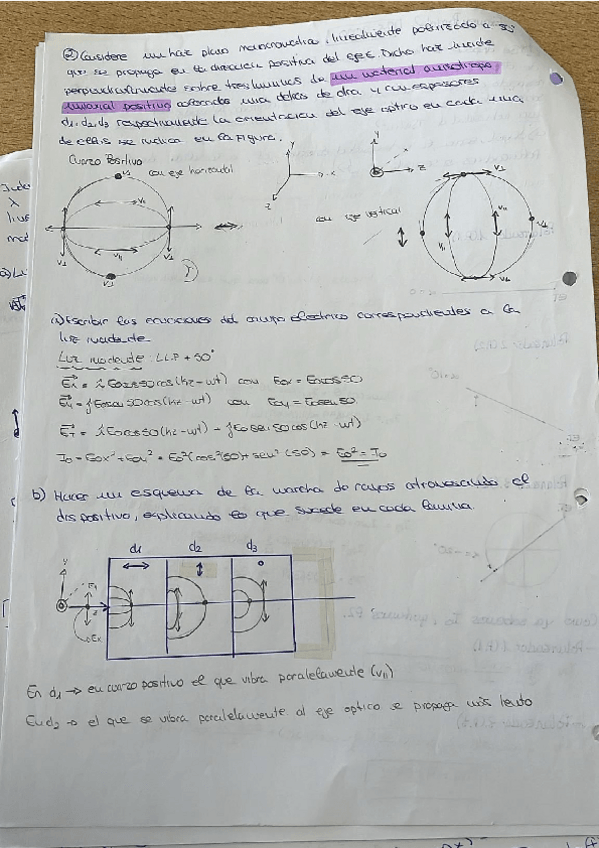 ② Considere un haz plano monocromático, linealmente polarizado a 50°
que se propaga en la dirección positiva del eje z. Dicho haz incide
perpendicularmente sobre tres láminas de un material anisótropo
uniaxial positivo colocadas una detrás de otra y con espesores
d1, d2, d3 respectivamente. La orientación del eje óptico en cada una
de ellas se indica en la Figura.
Cuarzo Positivo
con eje horizontal
y
x
z
y
x
z
con eje vertical
a) Escribir las ecuaciones del campo eléctrico correspondientes a la
luz incidente
Luz incidente: L.L.P + 50°
con Eox = Eocos50
con Eoy = Eosen50
Io = Eox² + Eoy² = Eo²(cos²(50) + sen²(50)) = Eo² = Io
b) Hacer un esquema de la marcha de rayos atravesando el
dispositivo, explicando lo que sucede en cada lámina.
d1 d2 d3
y
z
Ex
En d1 → en cuarzo positivo el que vibra paralelamente (v||)
En d2 → el que se vibra paralelamente al eje optico se propaga más lento